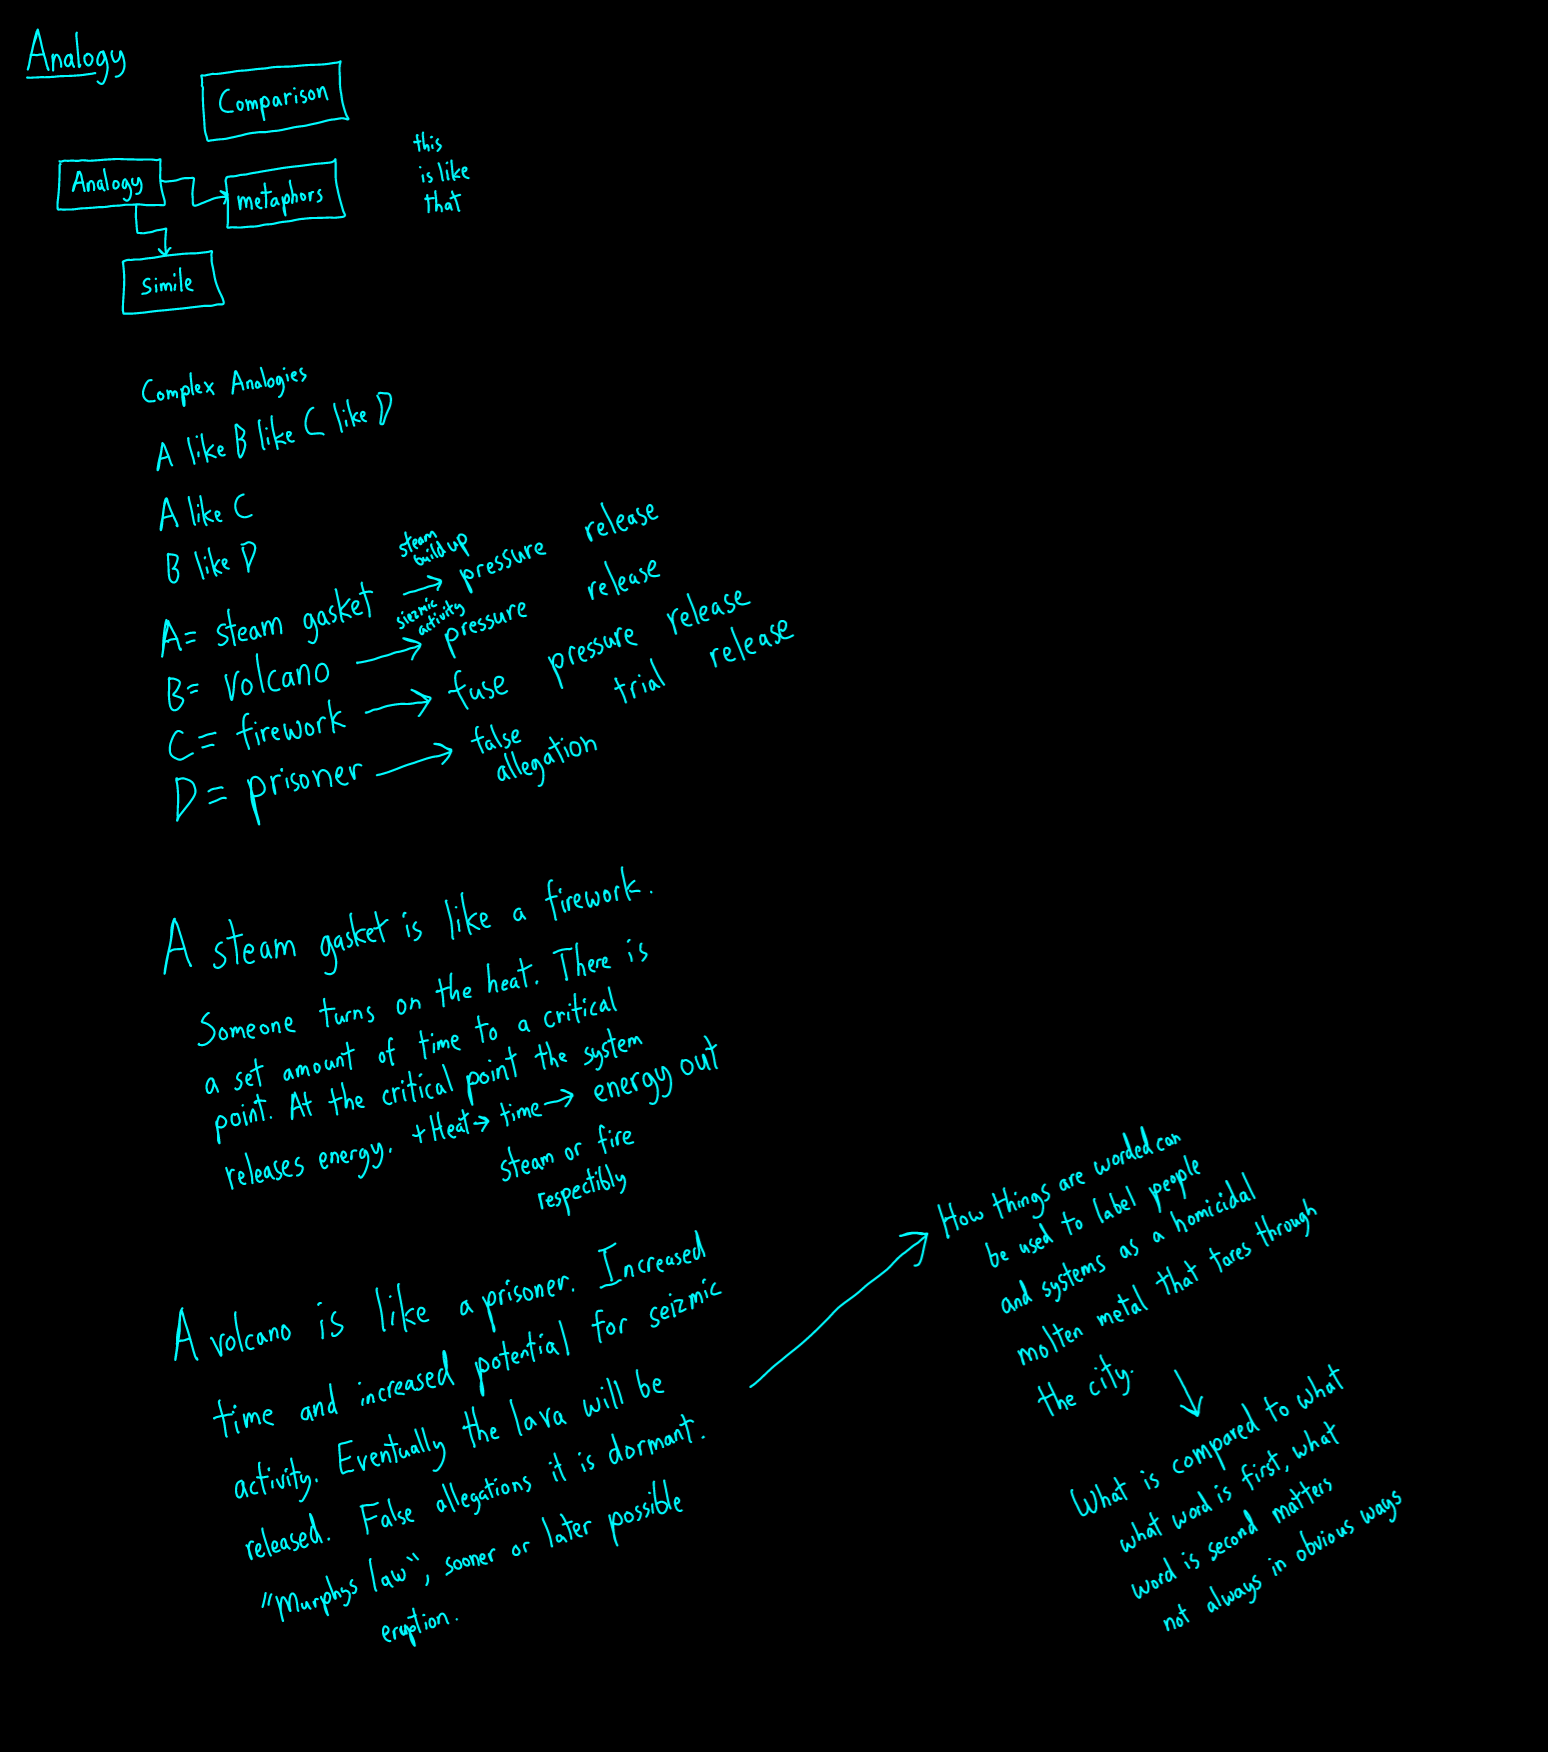 Analogy
Comparison
Analogy
metaphors
simile
this
is like
that
Complex Analogies
A like B like C like D
A like C
B like D
A= steam gasket
steam
build up
pressure release
B= volcano
siezmic
activity
pressure release
C= firework
fuse pressure release
D= prisoner
false
allegation
trial release
A steam gasket is like a firework.
Someone turns on the heat. There is
a set amount of time to a critical
point. At the critical point the system
releases energy. +Heat→ time→ energy out
steam or fire
respectibly
A volcano is like a prisoner. Increased
time and increased potential for seizmic
activity. Eventually the lava will be
released. False allegations it is dormant.
"Murphys law", sooner or later possible
eruption.
How things are worded can
be used to label people
and systems as a homicidal
molten metal that tares through
the city.
What is compared to what
what word is first, what
word is second matters
not always in obvious ways